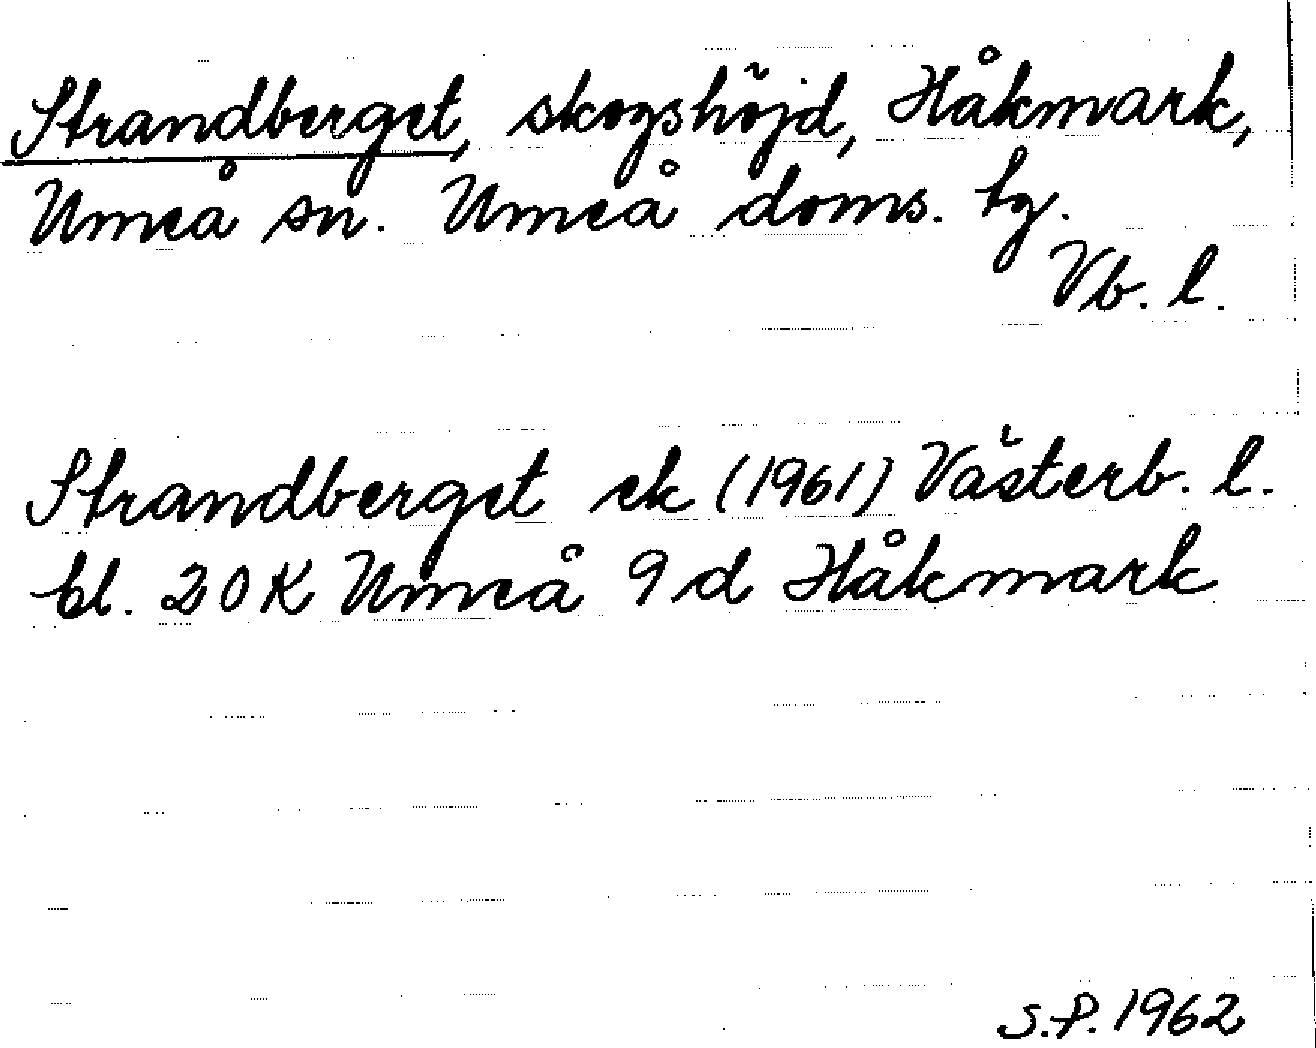 Strandberget, skogshöjd, Håkmark,
Umeå sn. Umeå doms. tg.
Vb. l.
Strandberget ek (1961) Västerb. l.
bl. 20 K Umeå 9 d Håkmark
S.P. 1962